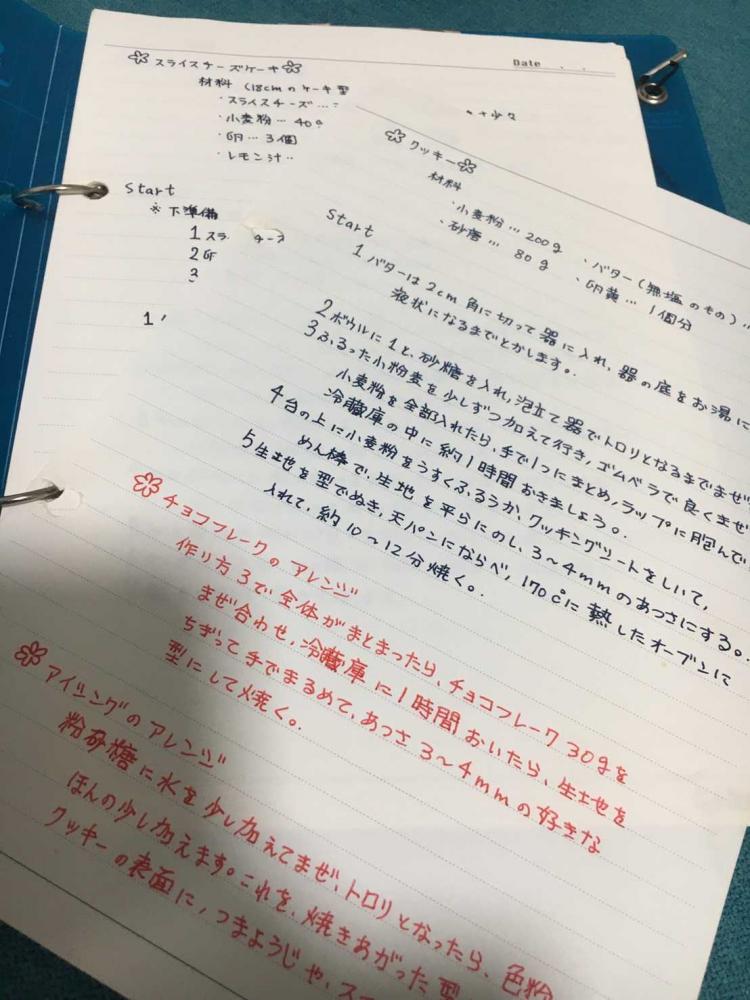 Date . .
スライスチーズケーキ
材料 (18cmのケーキ型
・スライスチーズ…
・小麦粉… 40g
・卵… 3個
・レモン汁…
Start
※下準備
1 スラ チーズ
2 卵
3
1
少々
クッキー
材料
・小麦粉… 200g ・バター(無塩のもの)…
・砂唐… 80g ・卵黄… 1個分
Start
1 バターは2cm角に切って器に入れ、器の底をお湯に
液状になるまでとかします。
2 ボウルに1と、砂糖を入れ、泡立て器でトロリとなるまでまぜ
3 ふるった小粉麦を少しずつ加えて行き、ゴムベラで良くまぜ
小麦粉を全部入れたら、手で1つにまとめ、ラップに包んで
冷蔵庫の中に約1時間おきましょう。
4 台の上に小麦粉をうすくふるうか、クッキングシートをしいて、
めん棒で、生地を平らにのし、3〜4mmのあつさにする。
5 生地を型でぬき、天パンにならべ、170℃に熱したオーブンに
入れて、約10〜12分焼く。
チョコフレークのアレンジ
作り方3で全体がまとまったら、チョコフレーク30gを
まぜ合わせ、冷蔵庫に1時間おいたら、生地を
ちぎって手でまるめて、あつさ3〜4mmの好きな
型にして焼く。
アイシングのアレンジ
粉砂糖に水を少し加えてまぜ、トロリとなったら、色粉
ほんの少し加えます。これを、焼きあがった型
クッキーの表面に、つまようじや、ス